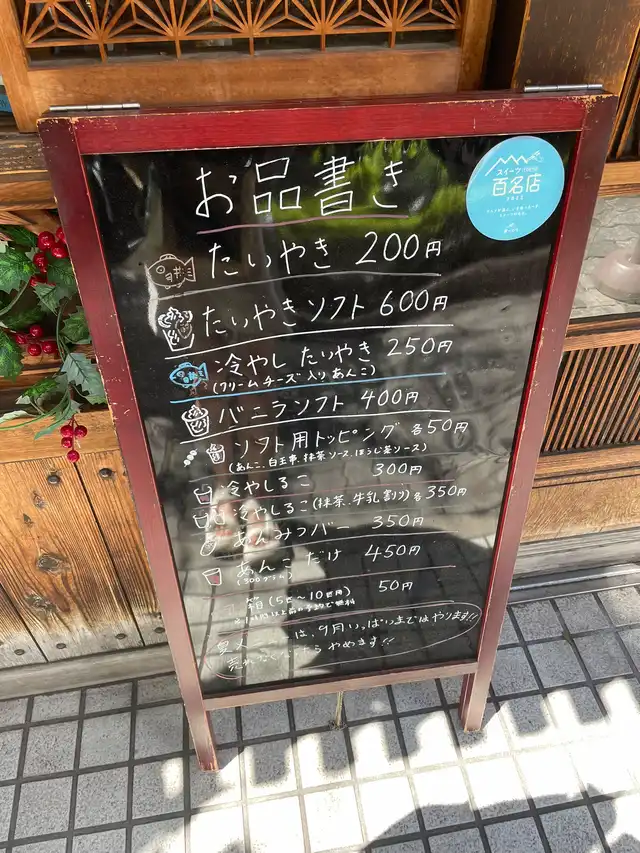 お品書き
スイーツ
百名店
2023
たいやき 200円
たいやきソフト 600円
冷やし たいやき 250円
(クリームチーズ入りあんこ)
バニラソフト 400円
ソフト用トッピング 各50円
(あんこ、白玉串、抹茶ソース、ほうじ茶ソース)
冷やしるこ 300円
冷やしるこ(抹茶、牛乳割り)各350円
あんみつバー 350円
あんこだけ 450円
(300グラム)
箱(5匹〜10匹用) 50円
は、9月いっぱいまではやります!!
やめます!!